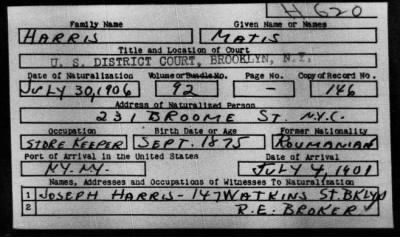 H 620
Family Name Given Name or Names
HARRIS MATIS
Title and Location of Court
U. S. DISTRICT COURT, BROOKLYN, N.Y.
Date of Naturalization Volume or Bundle No. Page No. Copy of Record No.
JULY 30, 1906 92 - 146
Address of Naturalized Person
231 BROOME ST. N.Y.C.
Occupation Birth Date or Age Former Nationality
STORE KEEPER SEPT. 1875 ROUMANIAN
Port of Arrival in the United States Date of Arrival
N.Y. N.Y. JULY 4, 1901
Names, Addresses and Occupations of Witnesses To Naturalization
1 JOSEPH HARRIS - 147 WATKINS ST. BKLYN
2 R.E. BROKER